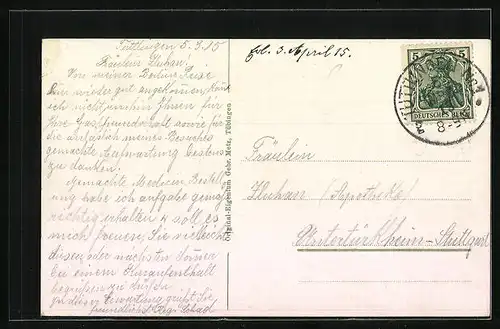 Tuttlingen 5.3.15
Fräulein Huhan.
Von meiner Berliner Reise
bin wieder gut angekommen,
nicht umhin Ihnen für
Ihre Gastfreundschaft sowie für
die anläßlich meines Besuches
gemachte Aufwartung bestens
zu danken.
Gemachte Medicin Bestell
ung habe ich aufgabe gemäß
richtig erhalten & soll es
mich freuen, Sie vielleicht
diesen oder nächsten Sommer
bei einem Kuraufenthalt
begrüßen zu dürfen
In dieser Erwartung grüßt Sie
freundlichst
Original-Eigentum Gebr. Metz, Tübingen
3. April 15.
5 5
DEUTSCHES REICH
TUTTLINGEN
8-9
Fräulein
Huhan (Apotheke)
Untertürkheim-Stuttgart